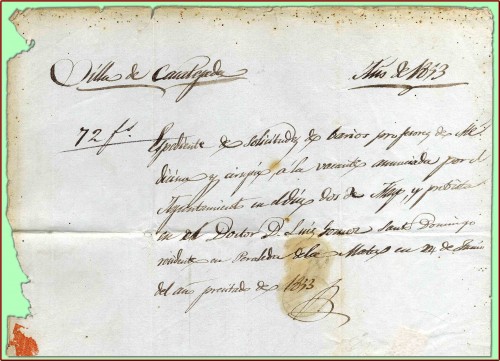 Villa de Casatejada
Año de 1853
72 fs.
Expediente de Solicitudes de varios profesores de Me-
dicina y cirujía á la vacante anunciada por el
Ayuntamiento en el día dos de Mayo, y
en el Doctor D. Luis Gomez Santo Domingo
residente en Peraleda de la Mata, en 24 de Junio
del año precitado de 1853